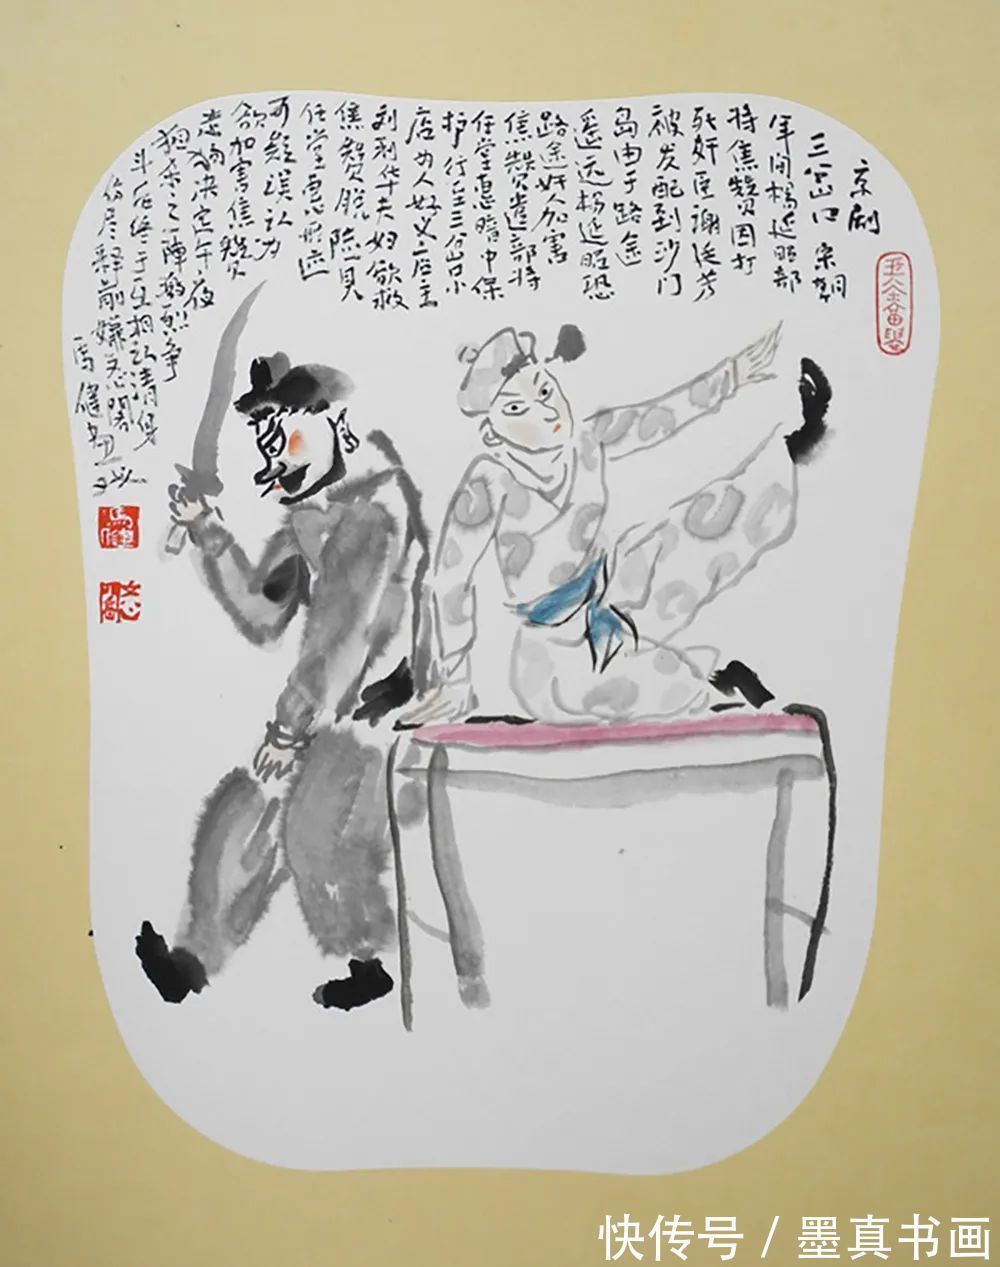 京剧
三岔口 宋朝
年间杨延昭部
将焦赞因打
死奸臣谢廷芳
被发配到沙门
岛由于路途
遥远杨延昭恐
路途奸人加害
焦赞遣部将
任堂惠暗中保
护行至三岔口小
店为人好义店主
刘利华夫妇欲救
焦赞脱险见
任堂惠形迹
可疑误认为
欲加害焦赞
决定午夜
之一阵激烈争
斗后终于互相认清身
份尽释前嫌
马健
快传号 / 墨真书画